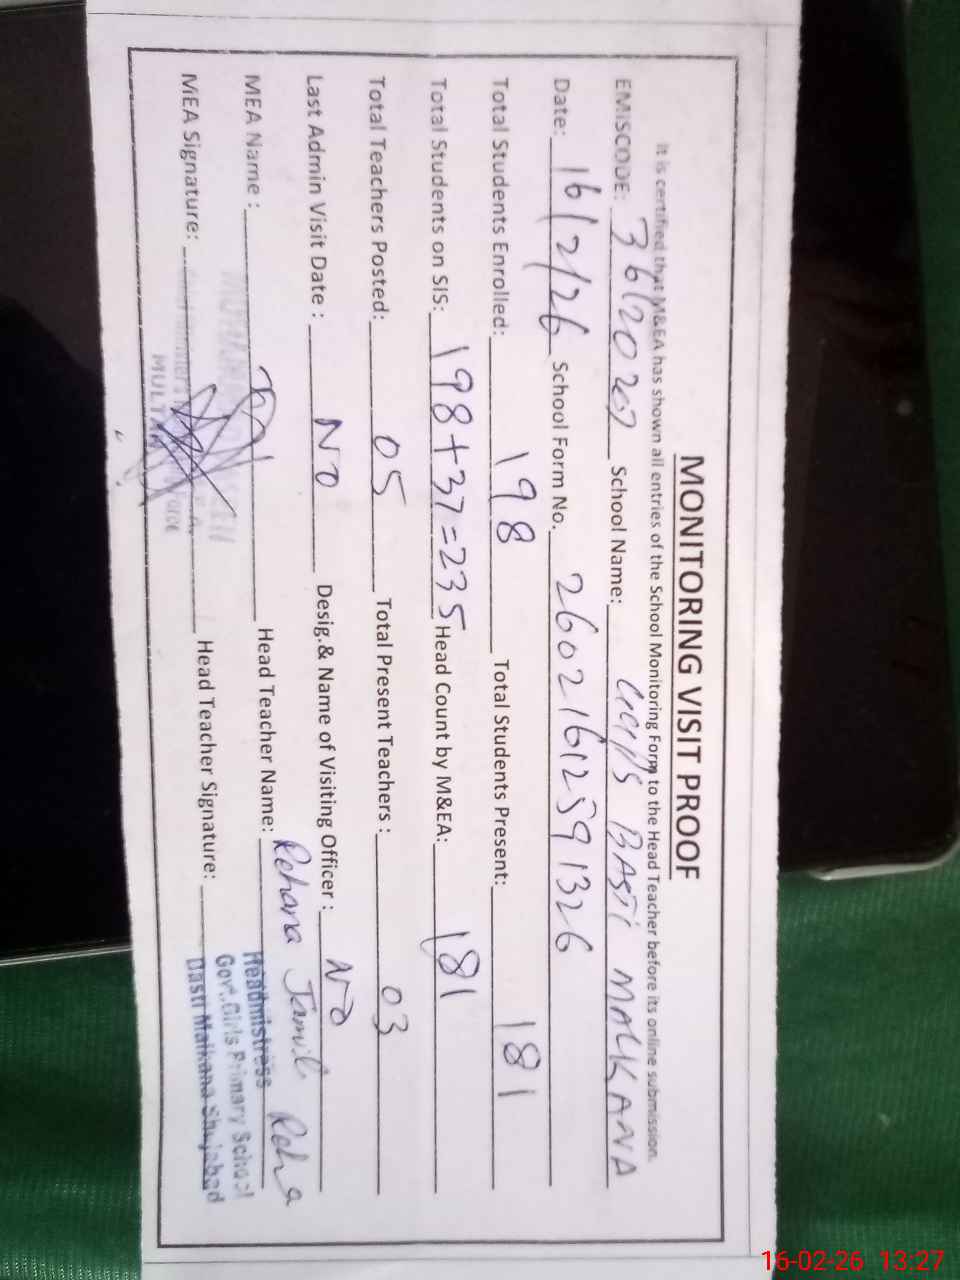 MONITORING VISIT PROOF
It is certified that M&EA has shown all entries of the School Monitoring Form to the Head Teacher before its online submission.
EMISCODE: School Name: GGPS BASTI MALKANA
Date: 16/2/26 School Form No. 26021612591326
Total Students Enrolled: 198 Total Students Present: 181
Total Students on SIS: 198+37=235 Head Count by M&EA: 181
Total Teachers Posted: 05 Total Present Teachers : 03
Last Admin Visit Date : NO Desig.& Name of Visiting Officer : NO
MEA Name : Head Teacher Name: Rehana Jamil
MEA Signature: Head Teacher Signature:
MULTAN
Headmistress
Govt.Girls Primary School
Basti Malkana Shujabad
16-02-26 13:27